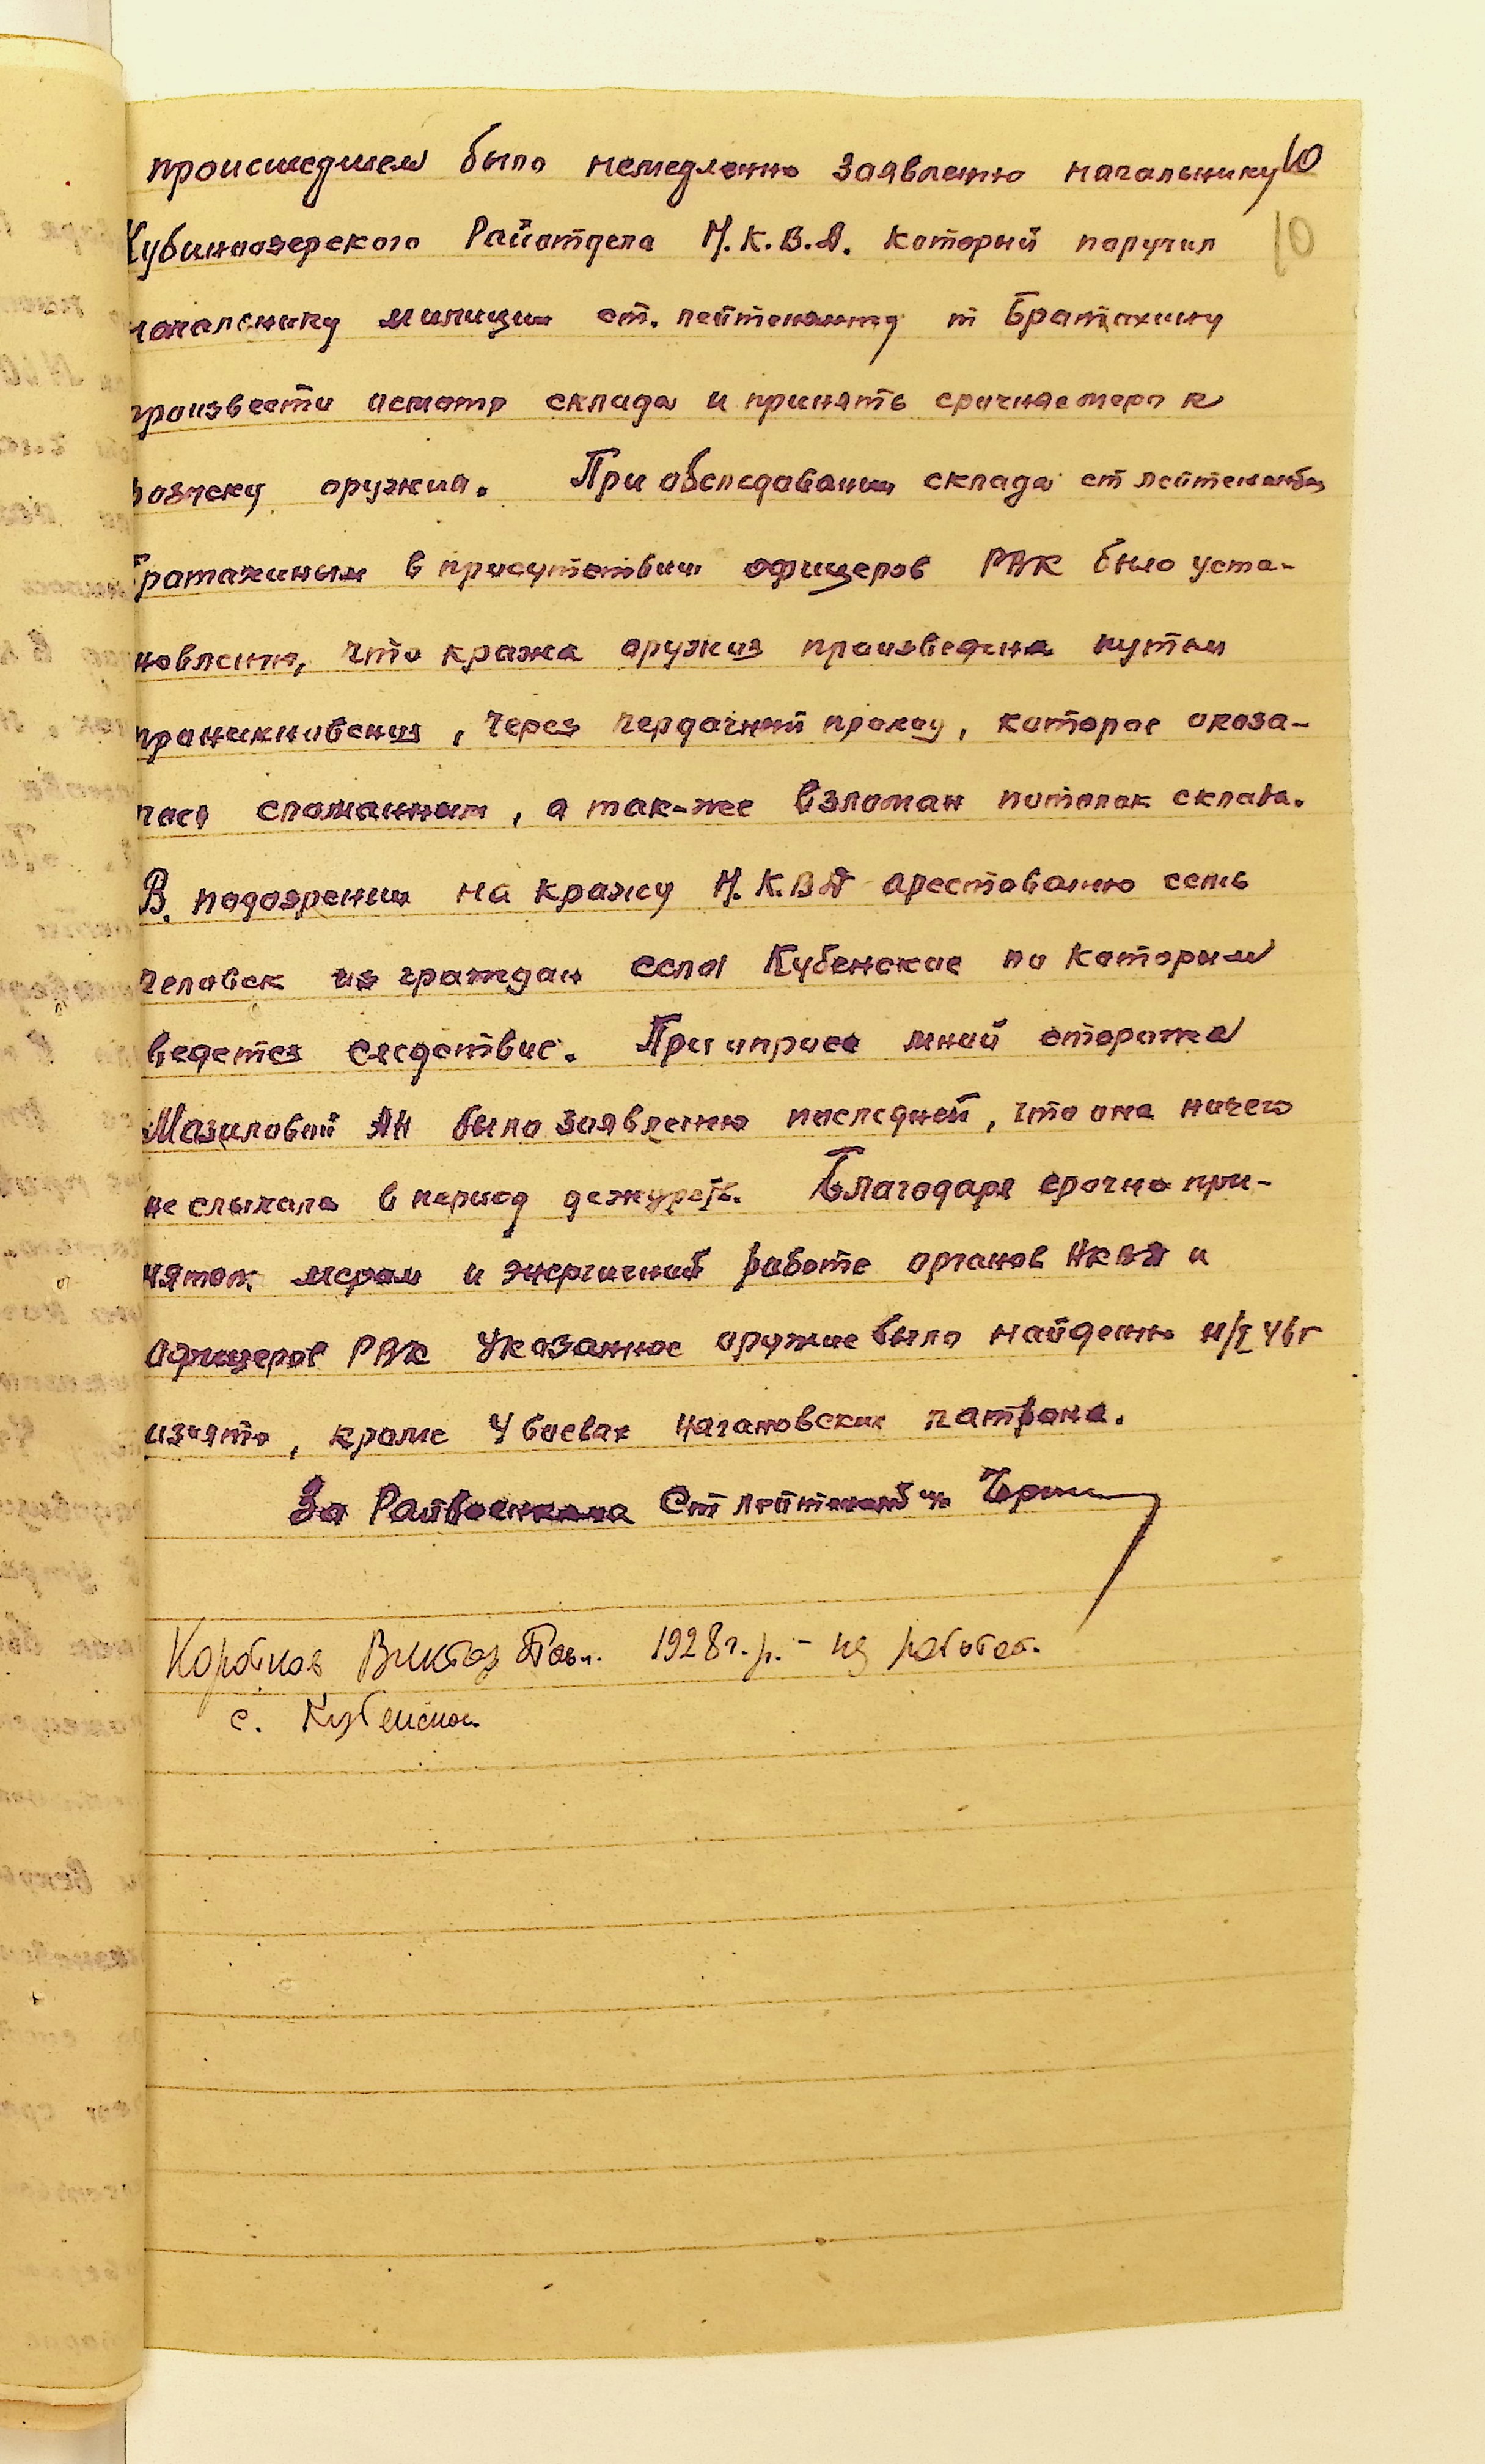 происшедшем было немедленно заявленно начальнику 10
Кубиноозерского Райотдела Н.К.В.Д. который поручил 10
начальнику милиции ст. лейтенанту т Братахину
произвести осмотр склада и принять срочные меры к
розыску оружия. При обследовании склада ст лейтенантом
Братахиным в присутствии офицеров РВК было уста-
новленно, что кража оружия произведена путем
проникновения, через чердачный проход, которое оказа-
лось сломанным, а так-же взломан потолок склада.
В подозрении на кражу Н.К.ВД арестованно семь
человек из граждан села Кубенское по которым
ведется следствие. При опросе сторожа
Мазиловой АН было заявленно последней, что она ничего
не слыхала в период дежурств. Благодаря срочно при-
нятых мерам и энергичной работе органов НКВД и
офицеров РВК указанное оружие было найденно и/I 46г
изъято, кроме 4 боевых нагановских патрона.
За Райвоенкома Ст лейтенант
Коробков Виктор Павл. 1928 г.р. - не работает.
с. Кубенское